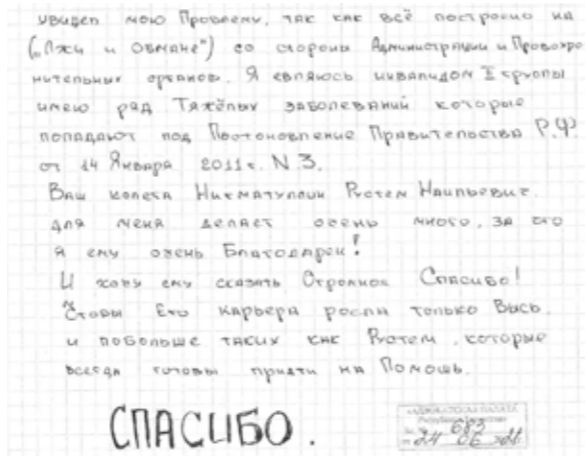 увидел мою Проблему, так как всё построено на
("Лжи и Обмане") со стороны Администрации и Провохро
нительных органов. Я евляюсь инвалидом II группы
имею ряд Тяжёлых заболеваний которые
попадают под Постоновление Правительства Р.Ф.
от 14 Января 2011г. N.3.
Ваш колега Нигматуллин Рустем Наильевич.
для меня делает очень много, за это
я ему очень Благодарен!
И хочу ему сказать Огромное Спасибо!
Чтобы Его карьера росла только Высь.
и побольше таких как Рустем, которые
всегда готовы придти на Помощь.
СПАСИБО.
АДВОКАТСКАЯ ПАЛАТА
Республики Татарстан
683
24 06 21